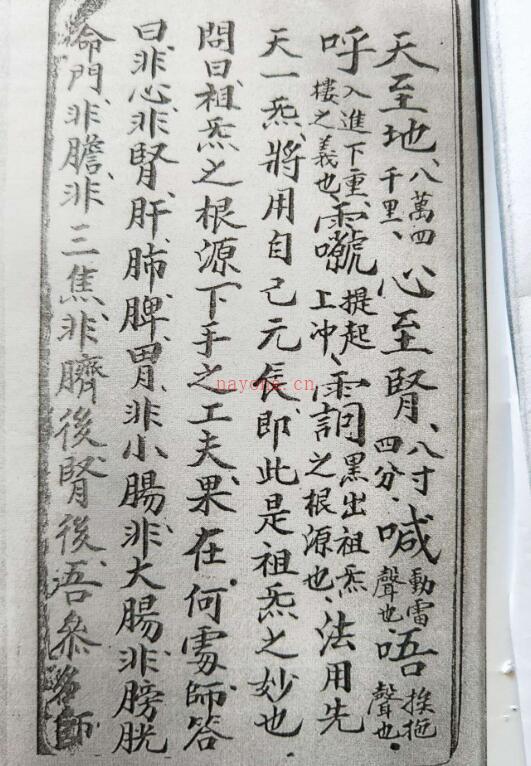 天至地、八萬四千里、心至腎、八寸四分、喊動雷聲也、唔挨拖聲也、
呼入進下重樓之義也、提起上冲、黑出祖炁之根源也、法用先
天一炁、將用自己元辰、即此是祖炁之妙也
問曰、祖炁之根源下手之工夫、果在何處、師答
曰、非心、非腎、肝、肺、脾、胃、非小腸、非大腸、非膀胱
命門、非膽、非三焦、非臍後腎後、吾叅名師
nayona.cn